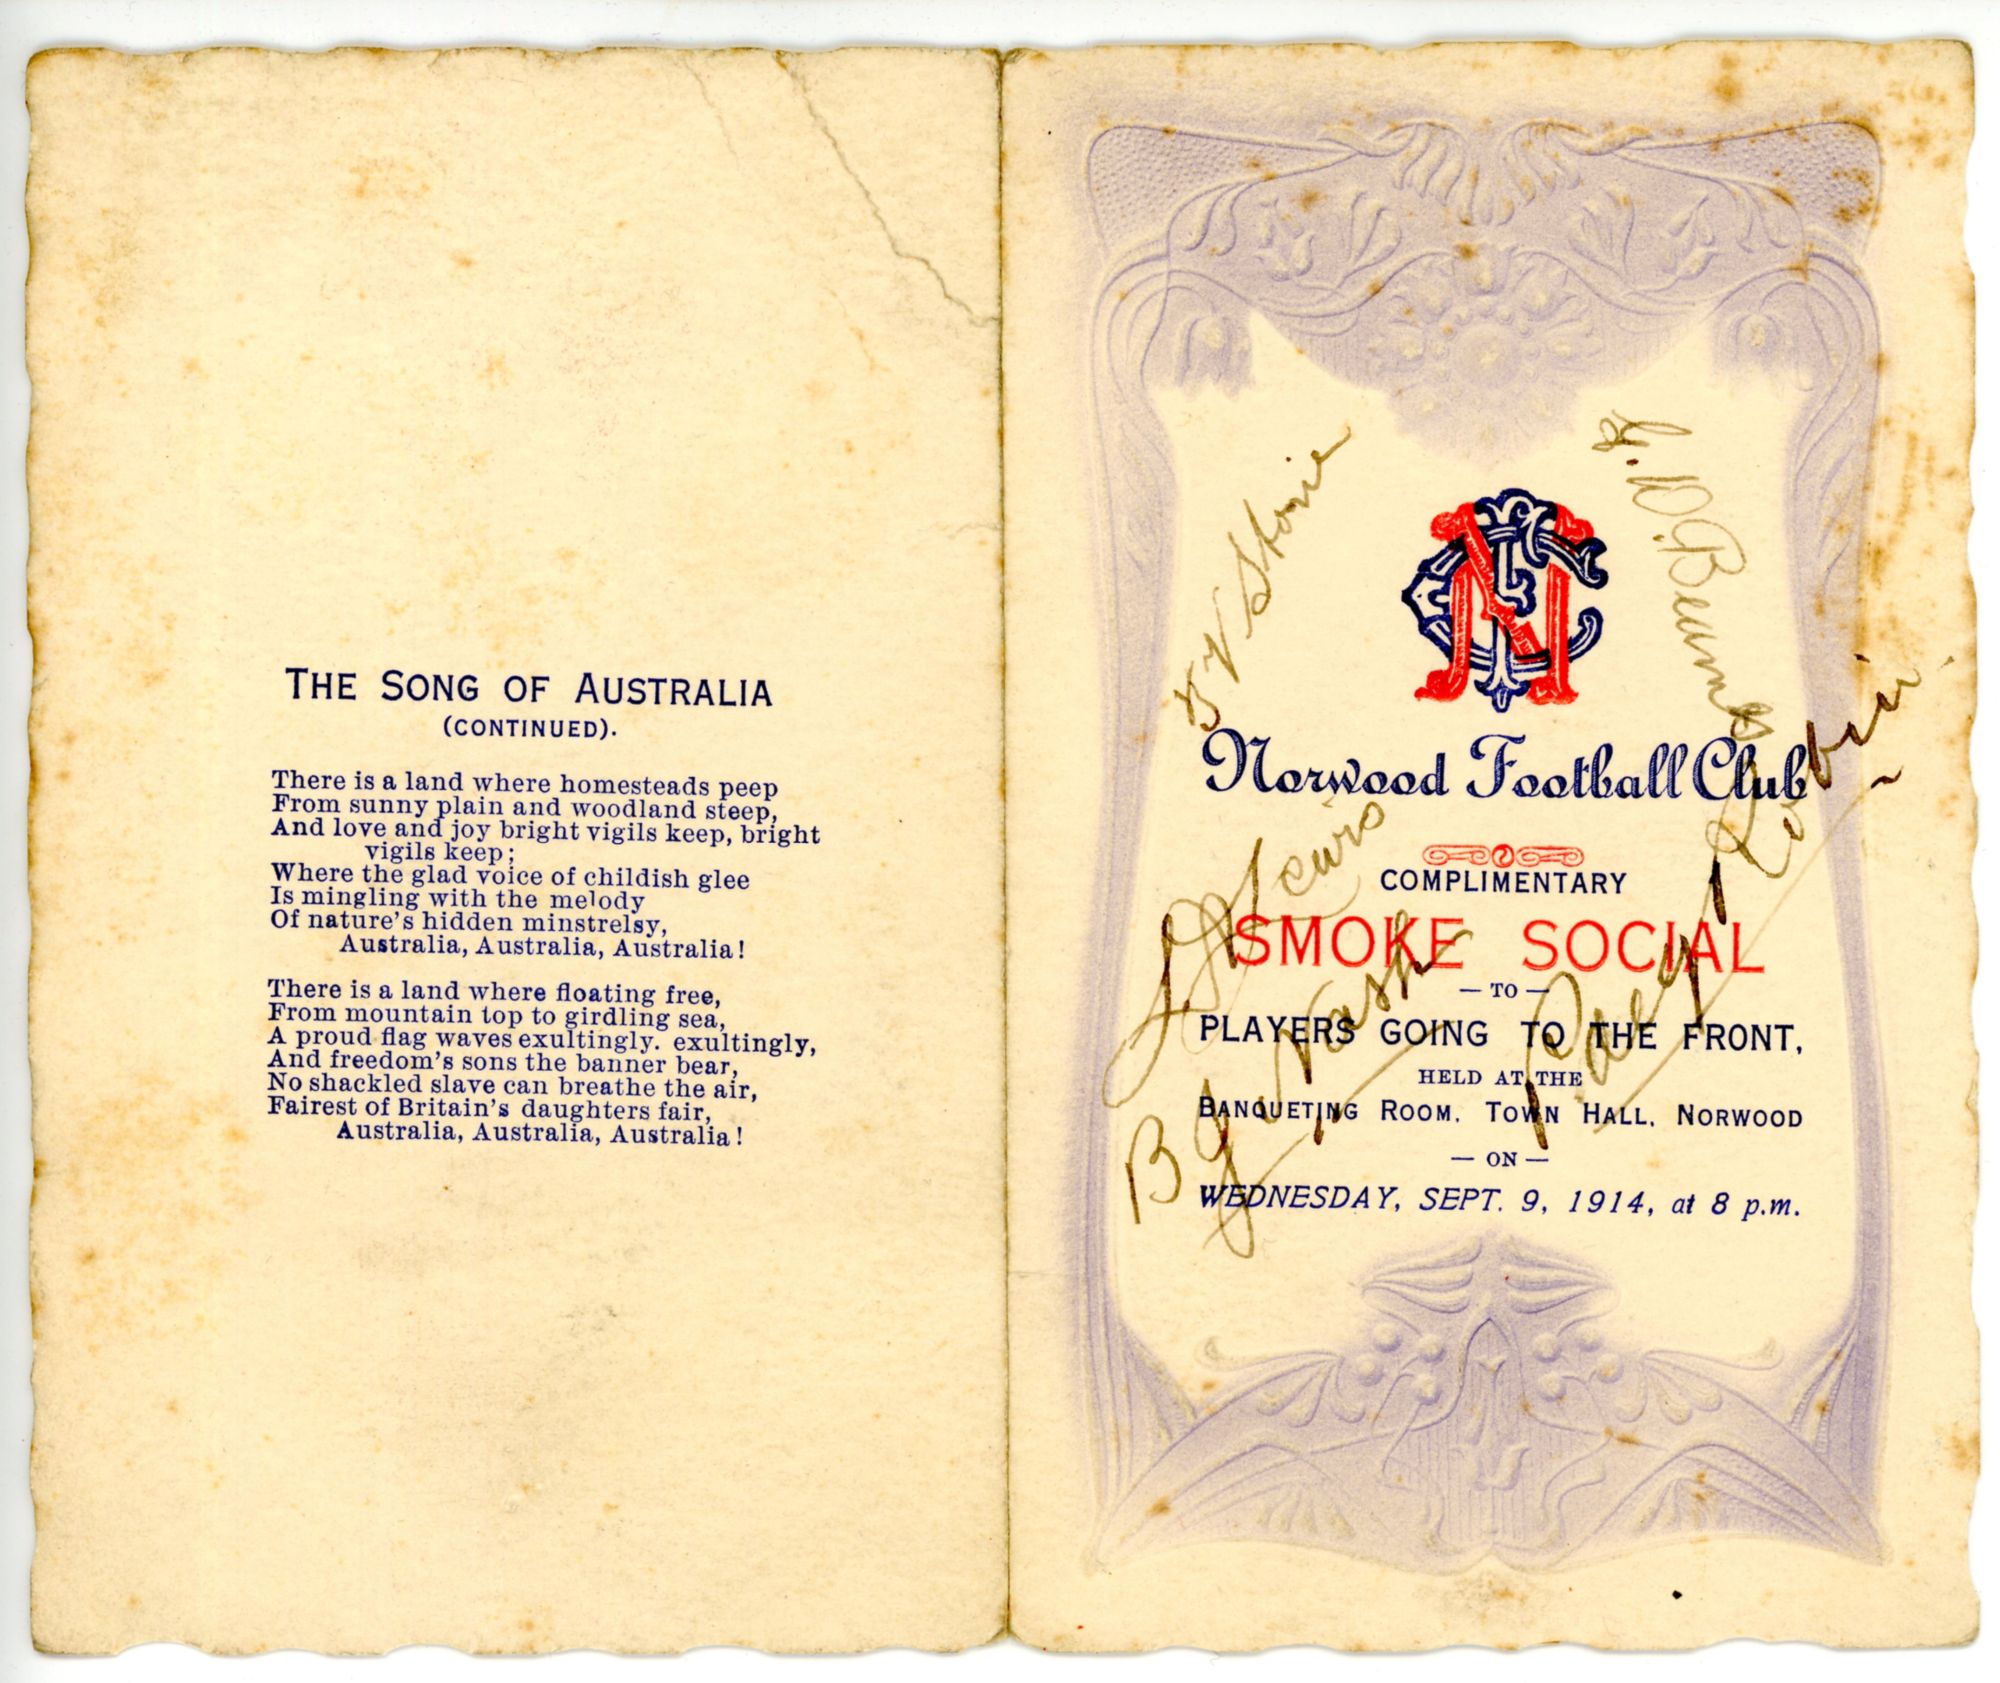 THE SONG OF AUSTRALIA
(CONTINUED).
There is a land where homesteads peep
From sunny plain and woodland steep,
And love and joy bright vigils keep, bright
vigils keep;
Where the glad voice of childish glee
Is mingling with the melody
Of nature's hidden minstrelsy,
Australia, Australia, Australia!
There is a land where floating free,
From mountain top to girdling sea,
A proud flag waves exultingly. exultingly,
And freedom's sons the banner bear,
No shackled slave can breathe the air,
Fairest of Britain's daughters fair,
Australia, Australia, Australia!
NFC
Norwood Football Club
COMPLIMENTARY
SMOKE SOCIAL
— TO —
PLAYERS GOING TO THE FRONT,
HELD AT THE
BANQUETING ROOM, TOWN HALL, NORWOOD
— ON —
WEDNESDAY, SEPT. 9, 1914, at 8 p.m.
Stone
Lewis
B G Nash